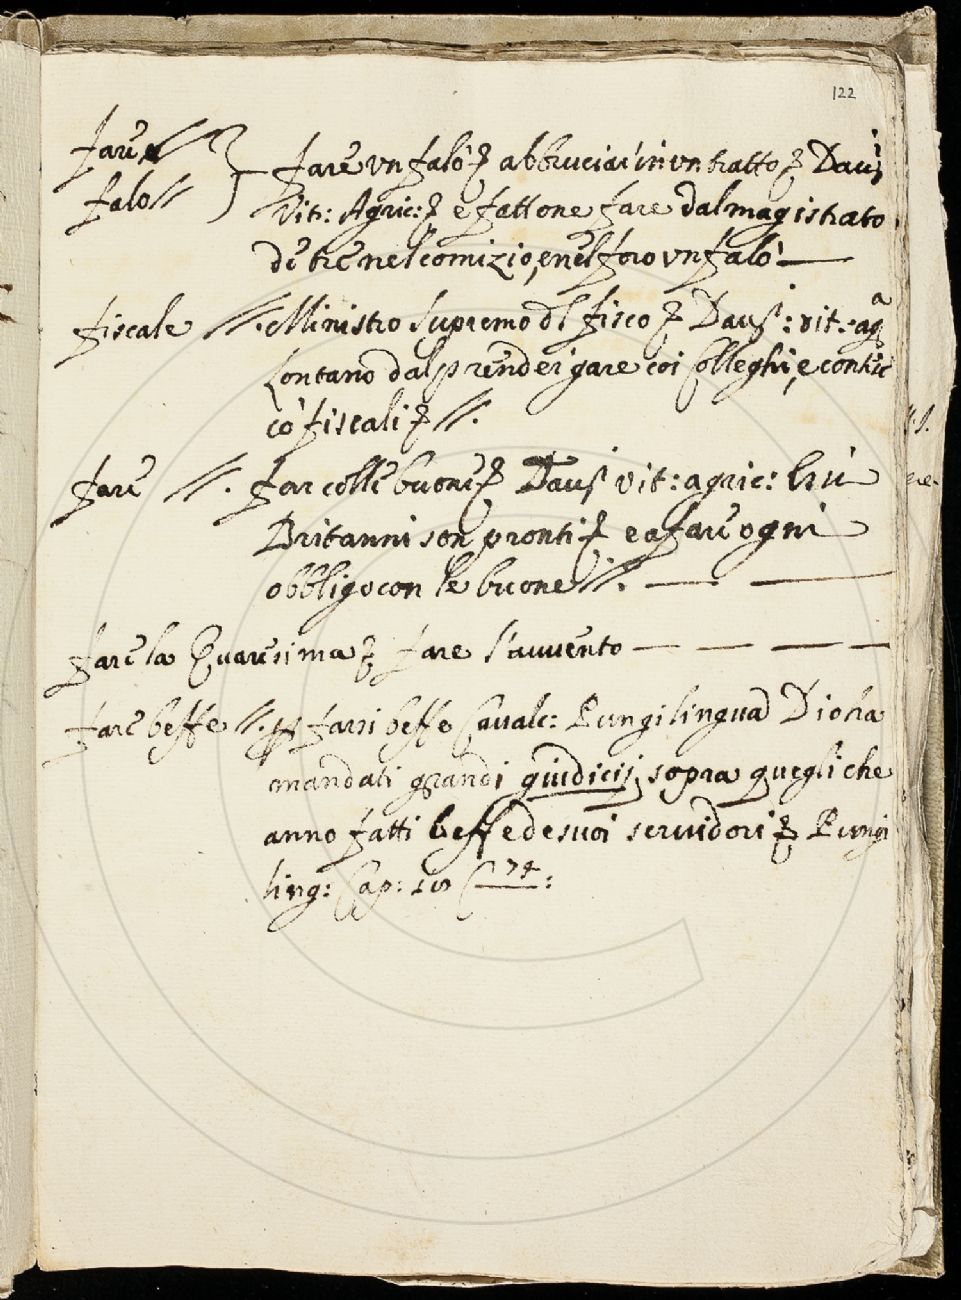 122
Fare // Fare un falò ꝫ abbruciar in un tratto ꝫ Davᶻⁱ
falo // Vit: Agric: ꝫ e fattone fare dal magistrato
de tre nel comizio, e nel foro un falò —
fiscale //. Ministro supremo dl fisco ꝫ Davᶻ: vit: agᵃ
Lontano dal prender gare coi Colleghi, e contese
co' fiscali ꝫ //.
fare //. far colle buone ꝫ Davᶻ vit: agric: 
Britanni son pronti ꝫ e a fare ogni
obbligo con le buone //. — . —
fare la Quaresima ꝫ fare l'avvento — — — —
fare beffe //. ꝑ farsi beffe Cavalc: Pungilingua Dio ha
mandati grandi giudicij sopra quegli che
anno fatti beffe de suoi servidori ꝫ Pungi
ling: Cap: C 74: